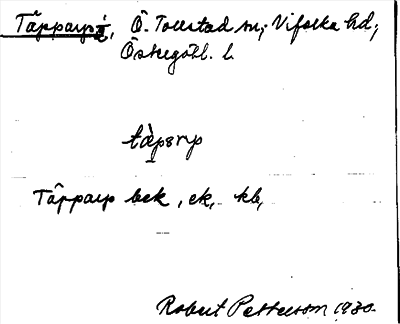 Täpparp, Ö. Tollstad sn; Vifolka hd;
Östergötl. l.
Täpparp bck, ek, kb,
Robert Pettersson 1930.